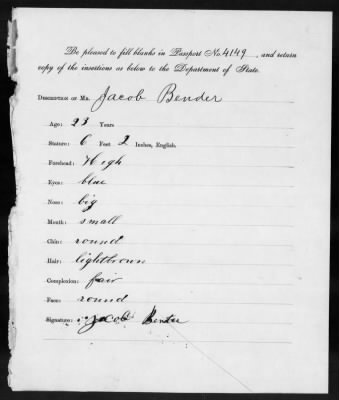 Be pleased to fill blanks in Passport No. 4149, and return
copy of the insertions as below to the Department of State.
Description of Mr. Jacob Bender
Age: 23 Years
Stature: 6 Feet 2 Inches, English.
Forehead: High
Eyes: blue
Nose: big
Mouth: small
Chin: round
Hair: lightbrown
Complexion: fair
Face: round
Signature: Jacob Bender